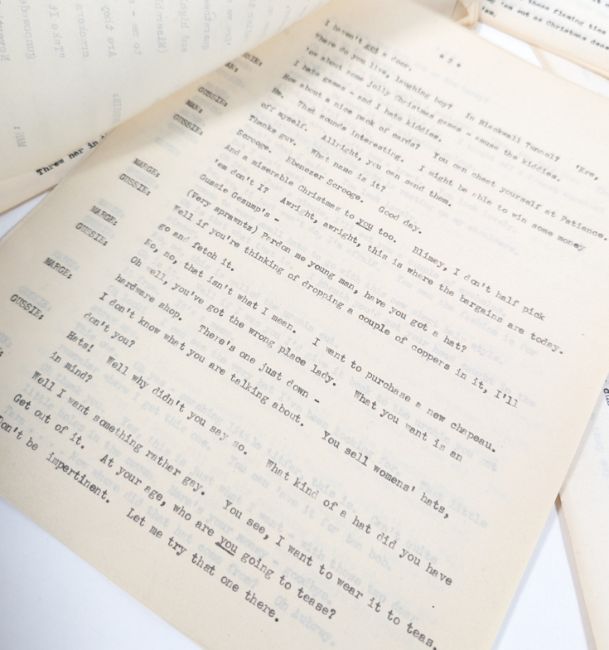 these fleming ties
'em out as Christmas dec
'em.
I haven't got a door.
Where do you live, laughing boy? In Blackwall Tunnel? 'Ere,
'ow about some jolly Christmas games - amuse the kiddies.
I hate games - and I hate kiddies.
GUSSIE: How about a nice pack of cards? You can cheat yourself at Patience.
MAN: Hm. That sounds interesting. I might be able to win some money
off myself. Allright, you can send them.
GUSSIE: Thanks guv. What name is it?
MAN: Scrooge. Ebenezer Scrooge. Good day.
GUSSIE: And a miserable Christmas to you too. Blimey, I don't half pick
'em don't I? Awright, awright, this is where the bargains are today.
Gussie Gesump's -
MARGE: (very sprawntz) Pardon me young man, have you got a hat?
GUSSIE: Well if you're thinking of dropping a couple of coppers in it, I'll
go and fetch it.
MARGE: No, no, that isn't what I mean. I want to purchase a new chapeau.
GUSSIE: Oh well, you've got the wrong place lady. What you want is an
hardware shop. There's one just down -
MARGE: I don't know what you are talking about. You sell womens' hats,
don't you?
GUSSIE: Hats! Well why didn't you say so. What kind of a hat did you have
in mind?
Well I want something rather gay. You see, I want to wear it to teas.
Get out of it. At your age, who are you going to tease?
Don't be impertinent. Let me try that one there.